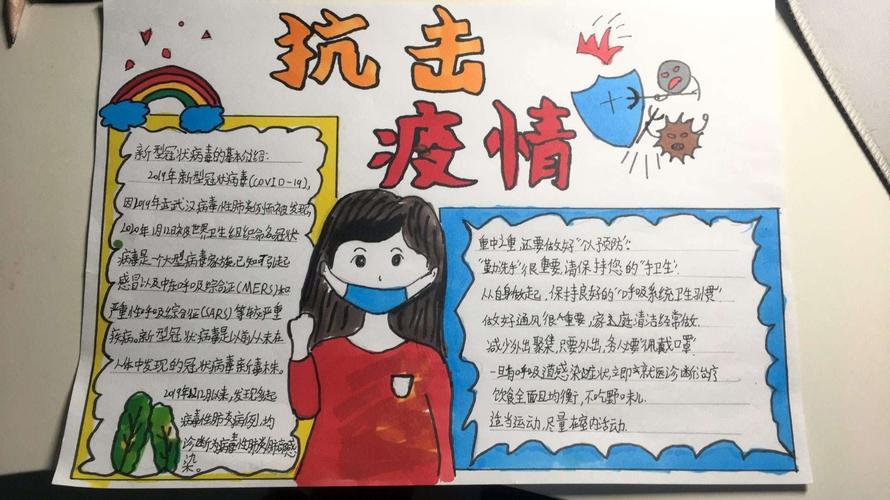 抗击
疫情
新型冠状病毒的基本介绍:
2019年新型冠状病毒(COVID-19),
因2019年在武汉病毒性肺炎病例被发现,
2020年1月12日被世界卫生组织命名冠状
病毒是一个大型病毒家族,已知可引起
感冒以及中东呼吸综合征(MERS)和
严重性呼吸综合征(SARS)等较严重
疾病。新型冠状病毒是以前从未在
人体中发现的冠状病毒新毒株。
2019年12月以来,发现多起
病毒性肺炎病例,均
诊断为病毒性肺炎肺部感
染。
重中之重,还要做好"个人预防":
"勤洗手"很重要,请保持您的"手卫生".
从自身做起,保持良好的"呼吸系统卫生习惯"
做好通风很重要,家庭清洁经常做.
减少外出聚集,只要外出,务必要佩戴口罩.
一旦有呼吸道感染症状,立即就医诊断治疗
饮食全面且均衡,不吃野味儿.
适当运动,尽量在室内活动.